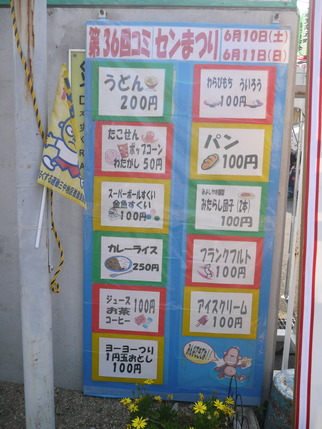 第36回コミセンまつり
6月10日(土)
6月11日(日)
うどん
200円
わらびもち ういろう
100円
たこせん
ポップコーン
わたがし 50円
パン
100円
スーパーボールすくい
金魚すくい
100円
みたらし団子(2本)
100円
カレーライス
250円
フランクフルト
100円
ジュース
お茶
コーヒー
100円
アイスクリーム
100円
ヨーヨーつり
1円玉おとし
100円